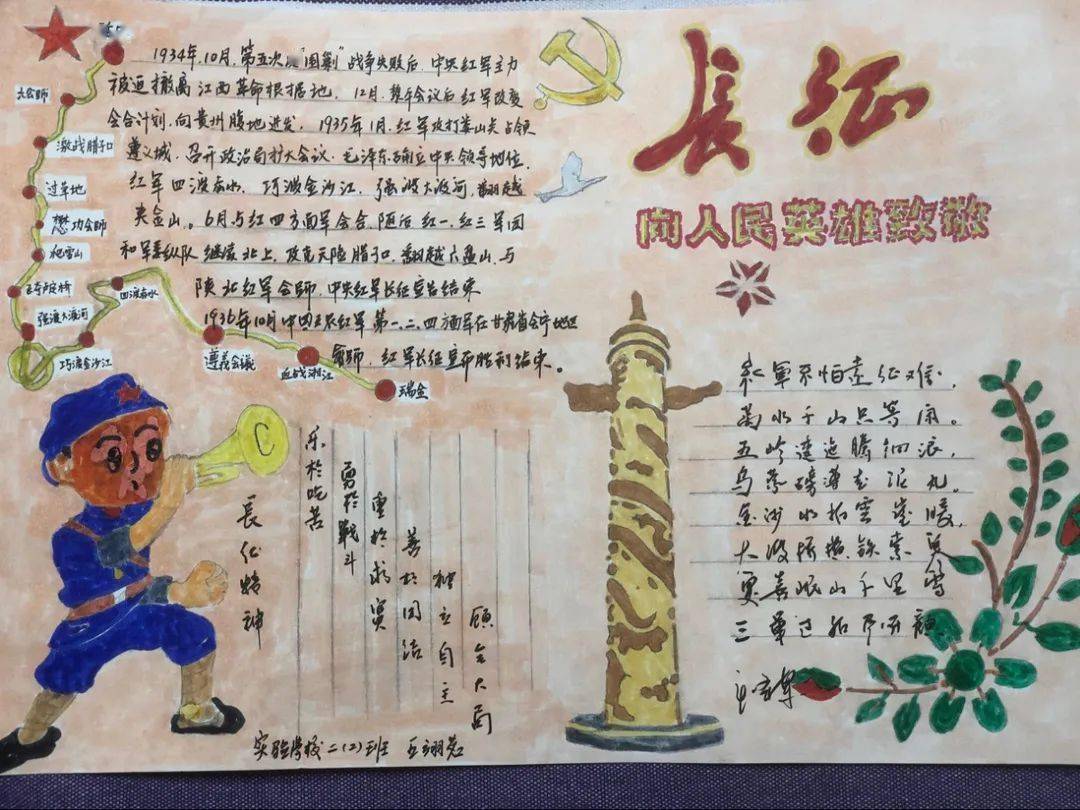 1934年.10月.第五次反"围剿"战争失败后.中央红军主力
被迫撤离江西革命根据地.12月.黎平会议后红军改变
会合计划.向贵州腹地进发.1935年1月.红军攻打娄山关占领
遵义城.召开政治局扩大会议.毛泽东确立中央领导地位.
红军四渡赤水.巧渡金沙江.强渡大渡河.翻越
夹金山.6月与红四方面军会合.随后红一.红三军团
和军委纵队继续北上.攻克天险腊子口.翻越六盘山.与
陕北红军会师.中央红军长征宣告结束
1936年10月中国工农红军第一、二、四方面军在甘肃省会宁地区
会师.红军长征宣布胜利结束。
大会师
激战腊子口
过草地
懋功会师
爬雪山
飞夺泸定桥
强渡大渡河
巧渡金沙江
四渡赤水
遵義会議
血战湘江
瑞金
長征
向人民英雄致敬
紅軍不怕遠征難,
萬水千山只等閒。
五岭逶迤騰細浪,
乌蒙磅礴走泥丸。
金沙水拍雲崖暖,
大渡桥横鉄索寒
更喜岷山千里雪
三軍过后尽開顔
長征精神
乐於吃苦
勇於戰斗
重於求實
善於团结
独立自主
顾全大局
实验学校二(2)班 王翊茗